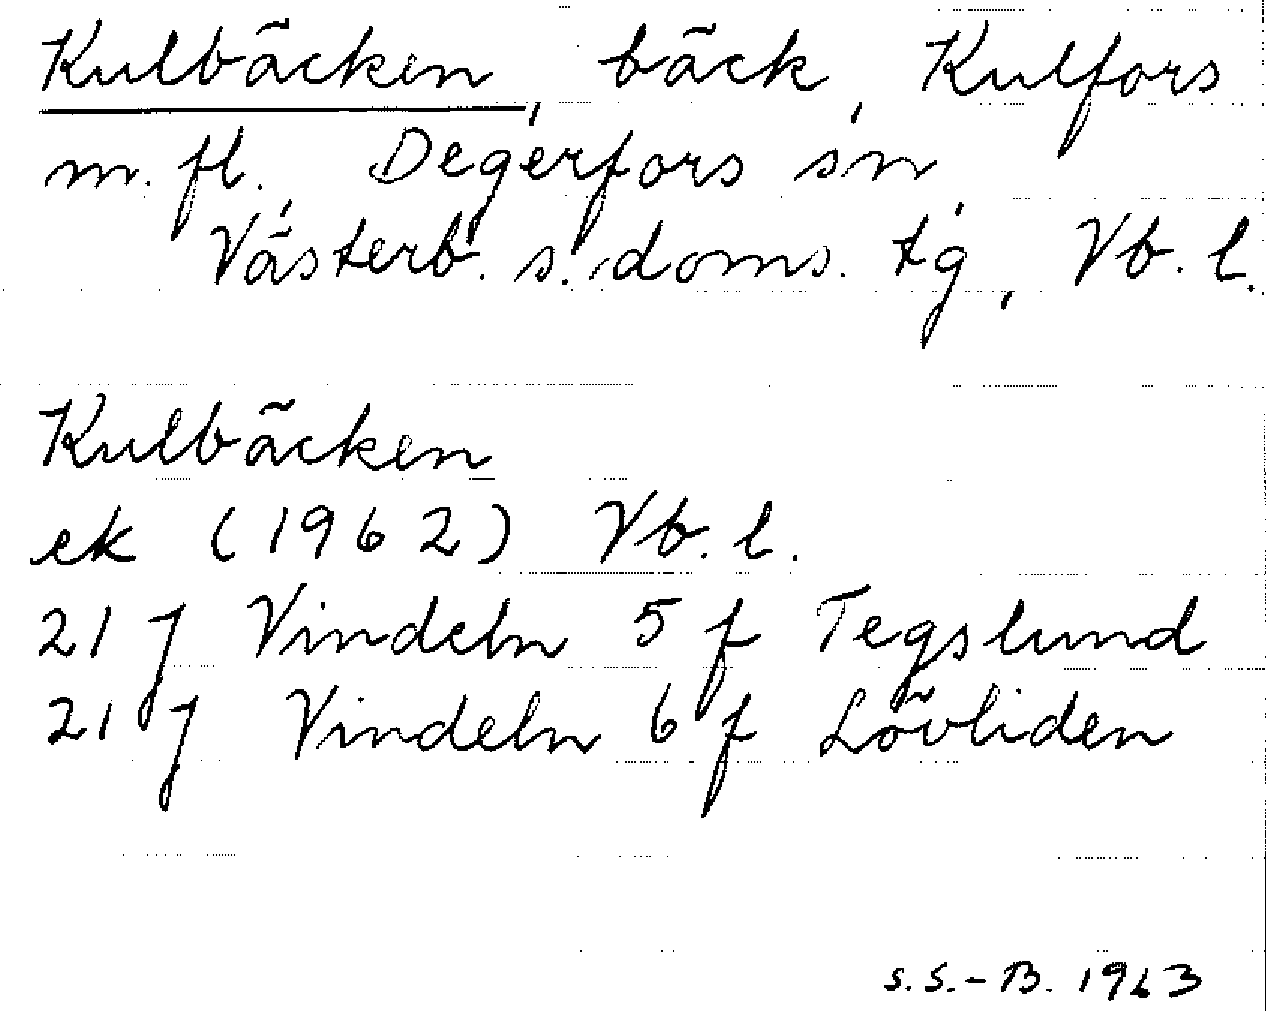 Kulbäcken, bäck, Kulfors
m. fl., Degerfors sn,
Västerb. s. doms. tg, Vb. l.
Kulbäcken
ek (1962) Vb. l.
21 J Vindeln 5 f Tegslund
21 J Vindeln 6 f Lövliden
S. S.-B. 1963